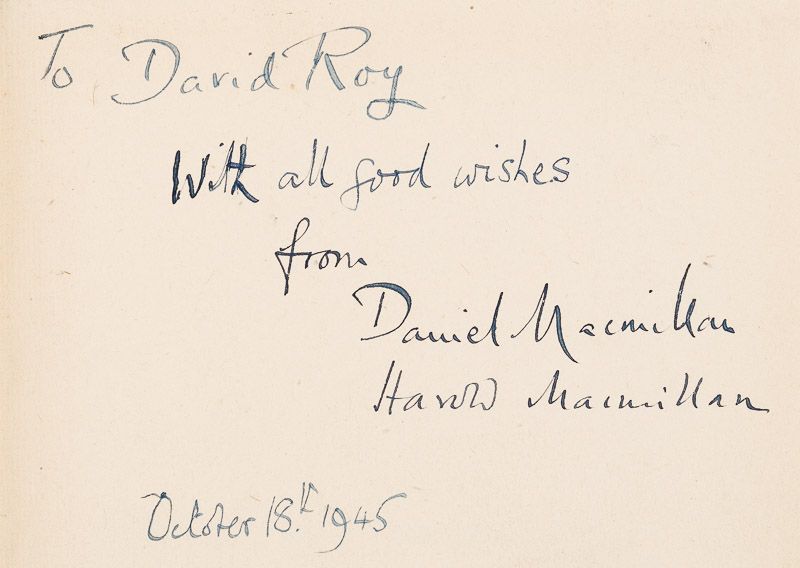 To David Roy
With all good wishes
from
Daniel Macmillan
Harold Macmillan
October 18.th 1945